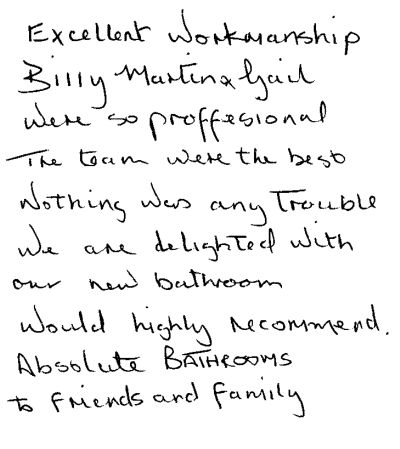 Excellent Workmanship
Billy Martin & Gail
Were so proffesional
The team were the best
Nothing was any Trouble
We are delighted with
our new bathroom
Would highly recommend.
Absolute BATHROOMS
to friends and family